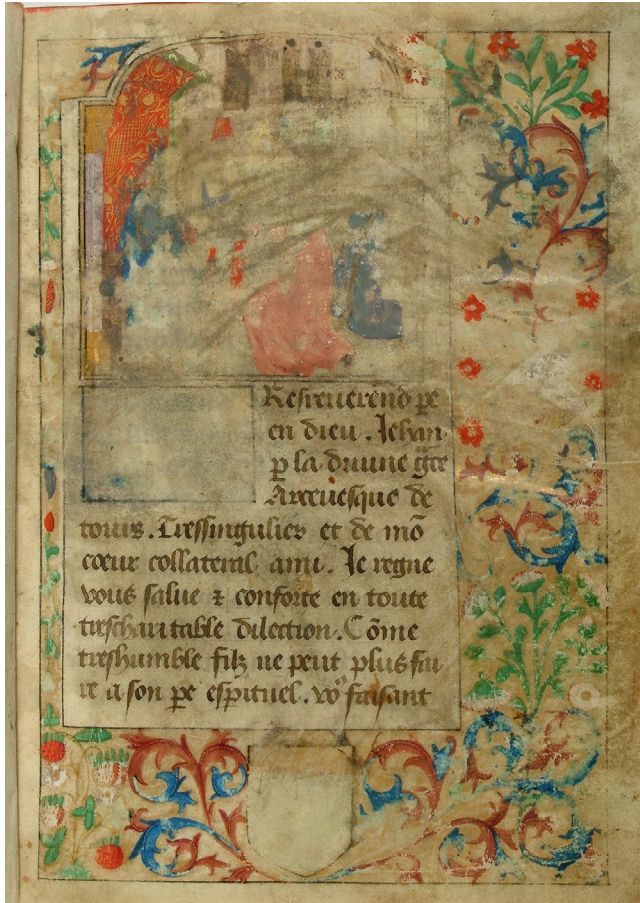 Resreuerend pe
en dieu. Jehan
p la diuine gce
Arceuesque de
tours. Tressingulier et de mō
coeur collateral ami. Je regne
vous salue ⁊ conforte en toute
trescharitable dilection. Cōme
treshumble filz ne peut plus fai
re a son pe espirituel. voꝰ faisant